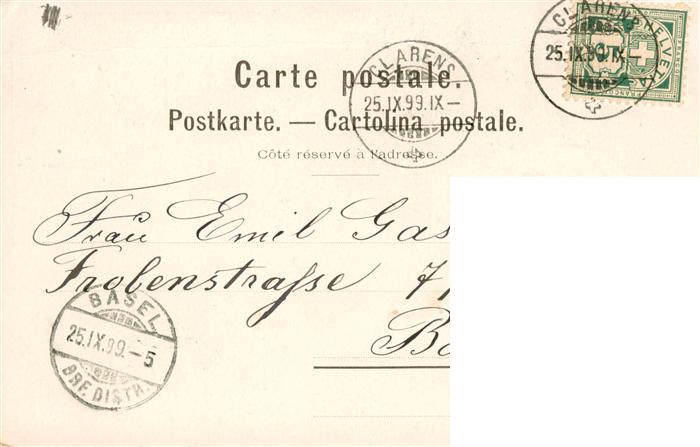 CLARENS
25.IX.99.IX–
HELVETIA
FRANCO
CLARENS
25.IX.99.IX–
Carte postale.
Postkarte. — Cartolina postale.
Côté réservé à l'adresse.
Frau Emil Gas
Frobenstrasse 7
Ba
BASEL
25.IX.99.–5
BRF.DISTR.